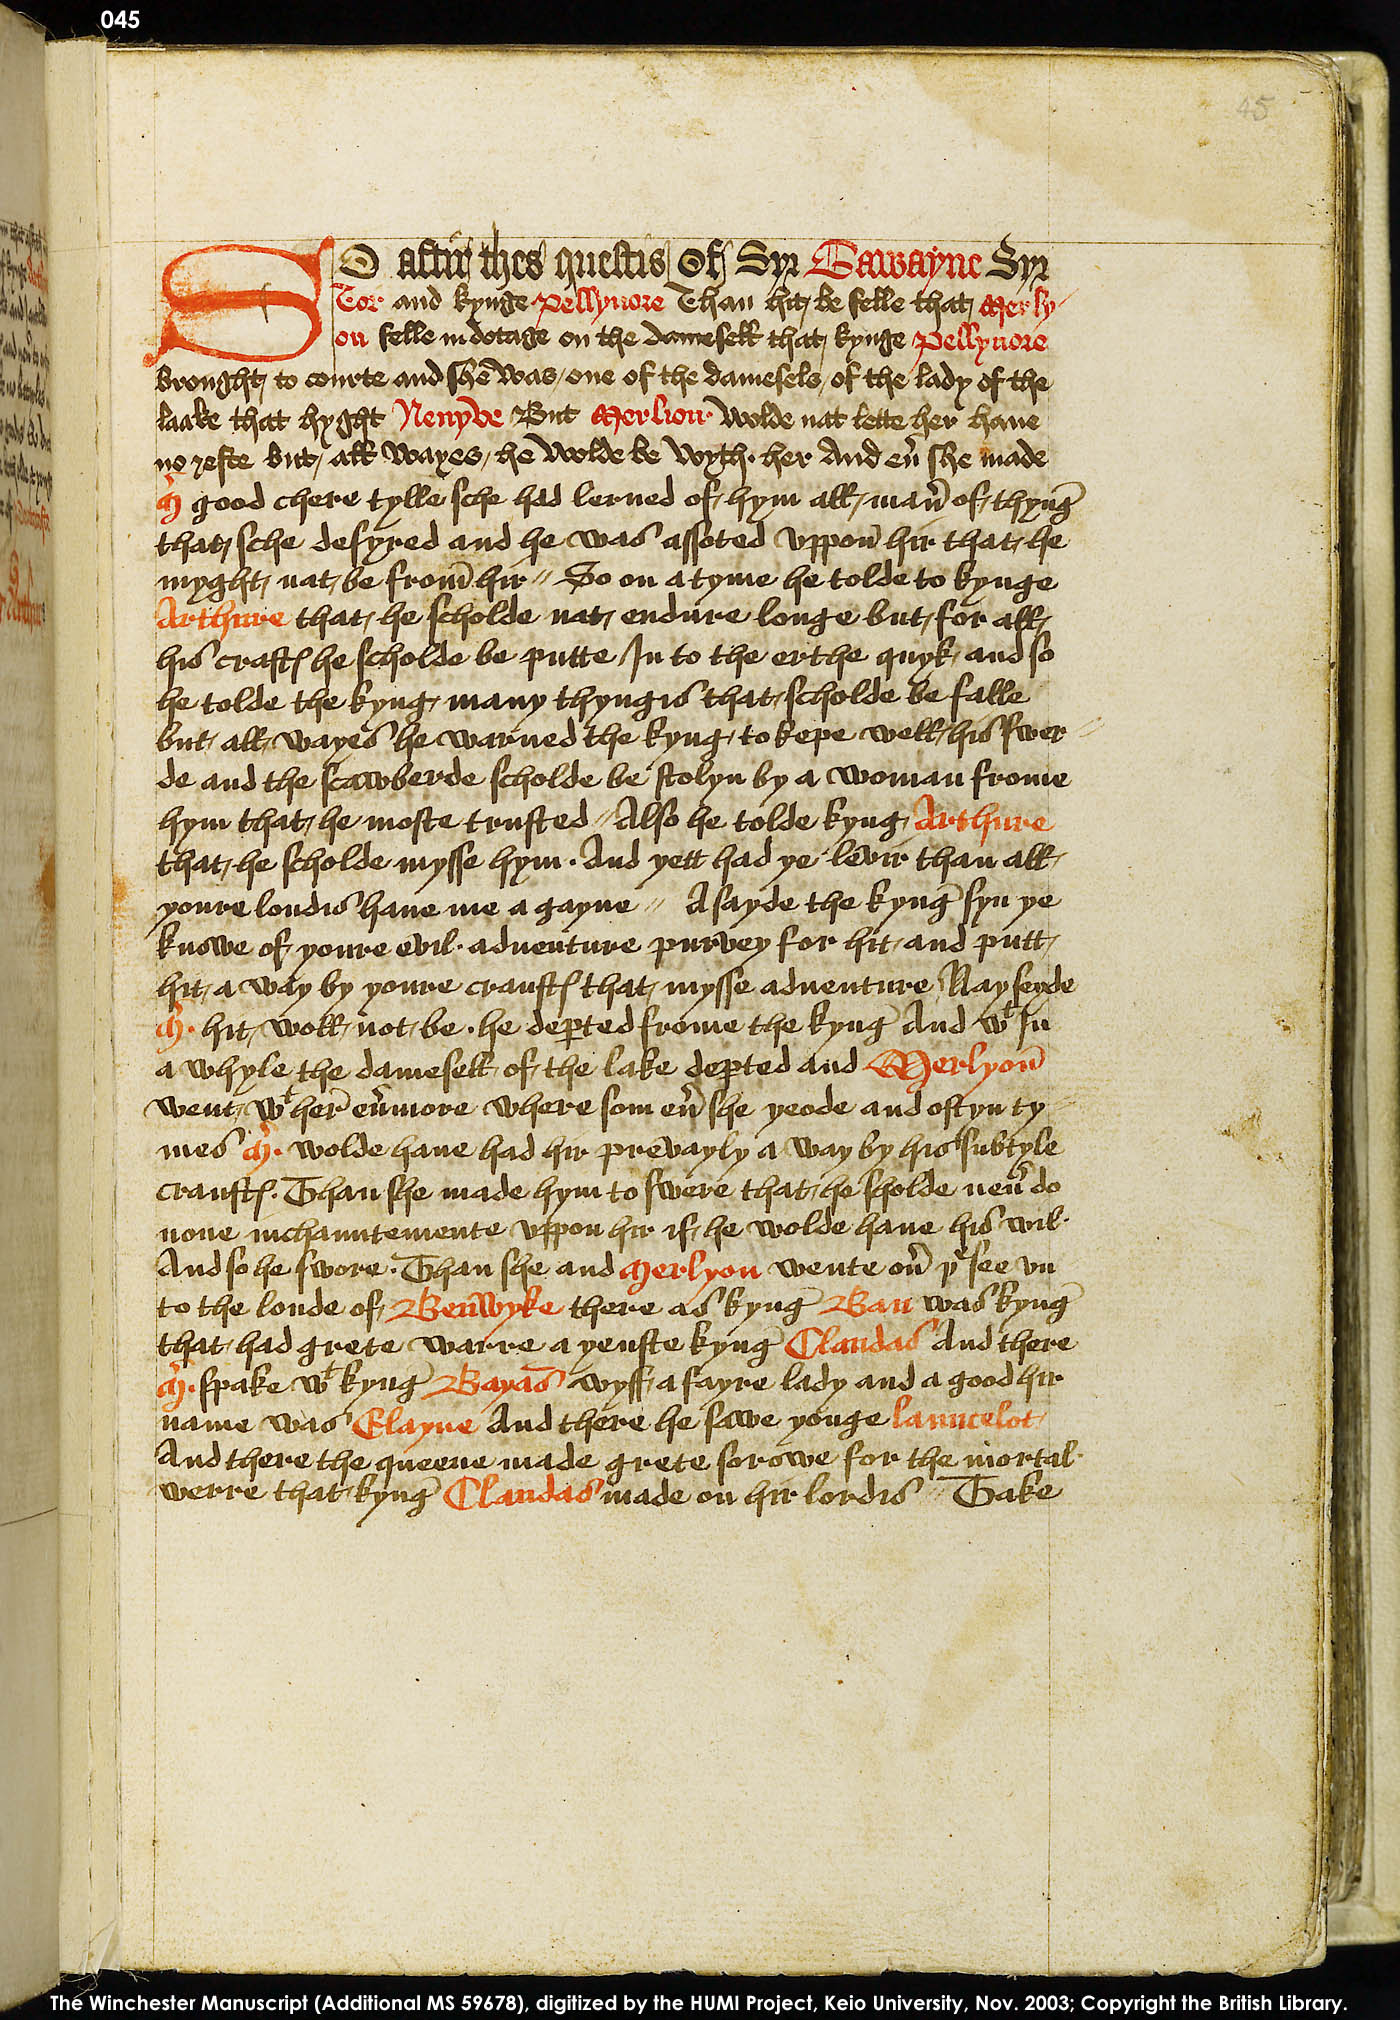 045
45
SO aftir thes questis Of Syr Gawayne Syr
Tor and kynge Pellynore Than hit be felle that Merly
on felle in dotage on the damesell that kynge Pellynore
brought to courte and she was one of the damesels of the lady of the
laake that hyght Nenyve But Merlion wolde nat lette her haue
no reste but all wayes he wolde be wyth her And eu̾ she made
M̾ good chere tylle sche had lerned of hym all man̾ of thyng̾
that sche desyred and he was assoted vppon̄ hir that he
myght nat be from̄ hir // So on a tyme he tolde to kynge
Arthure that he scholde nat endure longe but for all
his craftꝭ he scholde be putte In to the erthe quyk and so
he tolde the kyng many thyngis that scholde be falle
but all wayes he warned the kyng to kepe well his swer
de and the scawberde scholde be stolyn by a woman frome
hym that he moste trusted // Also he tolde kyng Arthure
that he scholde mysse hym · And yett had ye levir than all
youre londis haue me a gayne // A sayde the kyng̾ syn ye
knowe of youre evil aduenture purvey for hit and putt
hit a way by youre crauftꝭ that mysse aduenture Nay seyde
M̾ · hit woll not be · he dep̱ted frome the kyng̾ And wᵗ In
a whyle the damesell of the lake dep̱ted and Merlyon̄
went wᵗ her̾ eu̾more where som eu̾ she yeode and oftyn ty
mes M̾ · wolde haue had hir prevayly a way by his subtyle
crauftꝭ · Than she made hym to swere that he sholde neu̾ do
none inchauntemente vppon hir if he wolde haue his wil·
And so he swore · Than she and Merlyon wente ou̾ yᵉ see vn
to the londe of Benwyke there as kyng̾ Ban was kyng̾
that had grete warre a yenste kyng̾ Claudas And there
M̾ · spake wᵗ kyng̾ Bayas wyff a fayre lady and a good hir
name was Elayne And there he sawe yonge launcelot
And there the queene made grete sorowe for the mortal·
werre that kyng̾ Claudas made on hir lordis // Take
The Winchester Manuscript (Additional MS 59678), digitized by the HUMI Project, Keio University, Nov. 2003; Copyright the British Library.